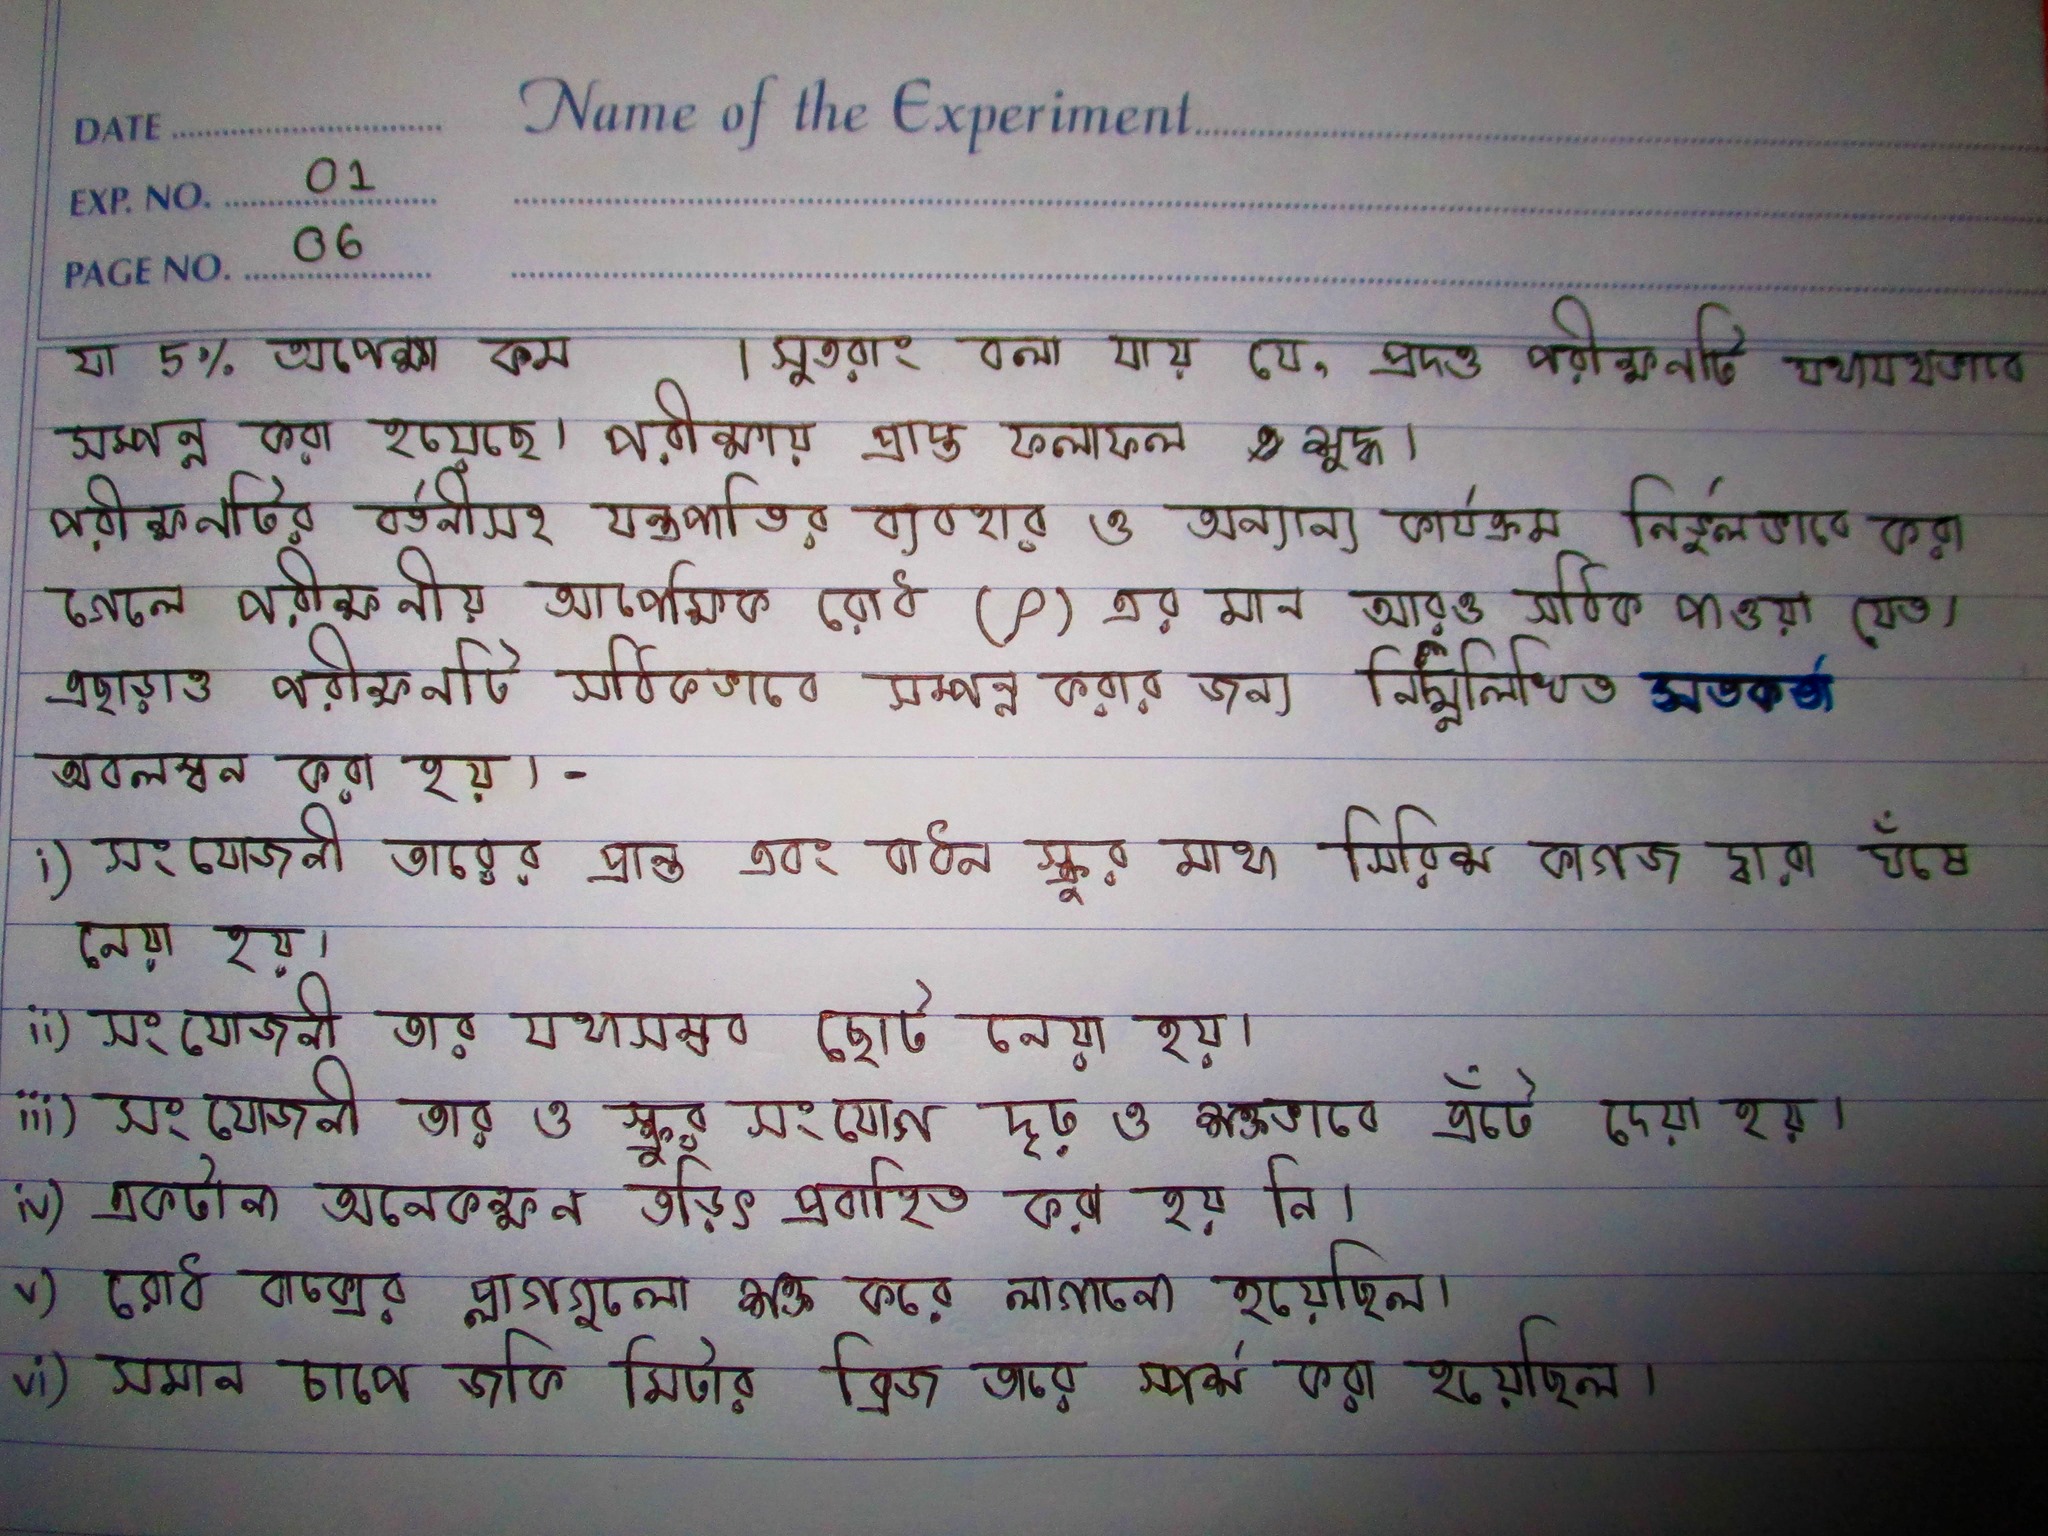 Name of the Experiment
DATE
EXP. NO. 01
PAGE NO. 06
যা 5% অপেক্ষা কম । সুতরাং বলা যায় যে, প্রদত্ত পরীক্ষনটি যথাযথভাবে
সম্পন্ন করা হয়েছে। পরীক্ষায় প্রাপ্ত ফলাফল শুদ্ধ।
পরীক্ষনটির বর্তনীসহ যন্ত্রপাতির ব্যবহার ও অন্যান্য কার্যক্রম নির্ভুলভাবে করা
গেলে পরীক্ষনীয় আপেক্ষিক রোধ (ρ) এর মান আরও সঠিক পাওয়া যেত।
এছাড়াও পরীক্ষনটি সঠিকভাবে সম্পন্ন করার জন্য নিম্নলিখিত সতর্কতা
অবলম্বন করা হয়। -
i) সংযোজনী তারের প্রান্ত এবং বাধন স্ক্রুর মাথা সিরিক্ষ কাগজ দ্বারা ঘঁষে
নেয়া হয়।
ii) সংযোজনী তার যথাসম্ভব ছোট নেয়া হয়।
iii) সংযোজনী তার ও স্ক্রুর সংযোগ দৃঢ় ও শক্তভাবে এঁটে দেয়া হয়।
iv) একটানা অনেকক্ষন তড়িৎ প্রবাহিত করা হয় নি।
v) রোধ বাক্সের প্লাগগুলো শক্ত করে লাগানো হয়েছিল।
vi) সমান চাপে জকি মিটার ব্রিজ তারে স্পর্শ করা হয়েছিল।